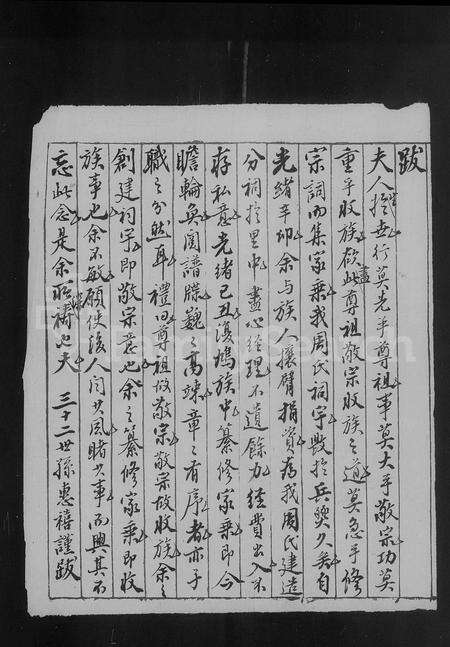 跋
夫人於世行莫先乎尊祖事莫大乎敬宗功莫
重乎收族故此尊祖敬宗收族之道莫急乎修
宗詞而集家乗我周氏祠宇毀於兵燹久矣自
光緒辛卯余與族人攘臂捐資為我周氏建造
分祠於里中盡心經理不遺餘力經費出入不
存私意光緒己丑復鳩族中纂修家乗即今
瞻輪奐閱譜牒巍之高竦章之有序者亦予
職之分然耳禮曰尊祖故敬宗敬宗故收族余之
創建祠宇即敬宗意也余之纂修家乗即收
族事也余不敏願使後人聞其風睹其事而興其不
忘此念是余所禱也夫 三十二世孫惠禧謹跋